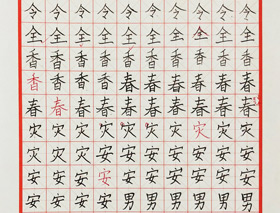 令令令令令令令令令令
全全全全全全全全全全
香香香香香香香香香香
香香香香春春春春春春
春春春春春春春春春春
灾灾灾灾灾灾灾灾灾灾
灾灾灾灾安安安安安安
安安安安安安安安安安
安安安安男男男男男男